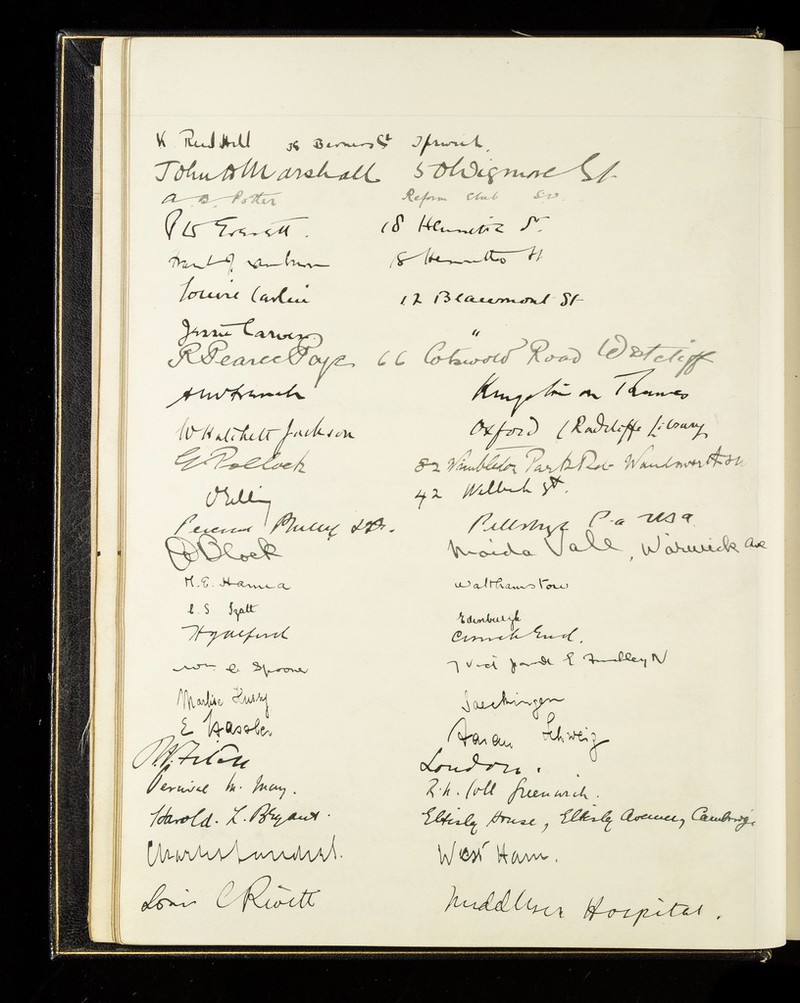 Hill 36 Berners St Ipswich.
John D Marshall 50 Wigmore St
A. B. Potter Reform Club S.W.
P W Everett. 18 Henrietta St.
18 Henrietta St
Louise Carlin 12 Beaumont St
Jessie "
R Pearce Page 66 Cotswold Road Westcliff
Kingston on Thames
W Hatchett Jackson Oxford (Radcliffe Library)
G Pollock 82 Wimbledon Park Rd Wandsworth SW
42 Welbeck St.
Pa USA
Block Maida Vale, Warwick Ave
M. E. Hanna Walthamstow
C. S. Edinburgh
Church End.
Wm C Spooner 7 Vict E Finchley N
Saeckingen
E Hassler Aarau Schweiz
London.
Percival M. May. R.N. Coll Greenwich.
Harold. L. Bryant. Eltisley House, Eltisley Avenue, Cambridge
Charles West Ham.
Louis C Rivett Middlesex Hospital.